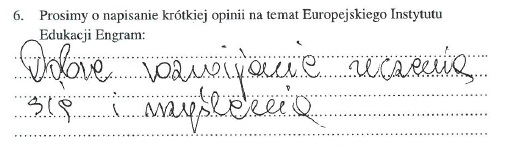 6. Prosimy o napisanie krótkiej opinii na temat Europejskiego Instytutu
Edukacji Engram:
Dobre rozwijanie uczenia
się i myślenia